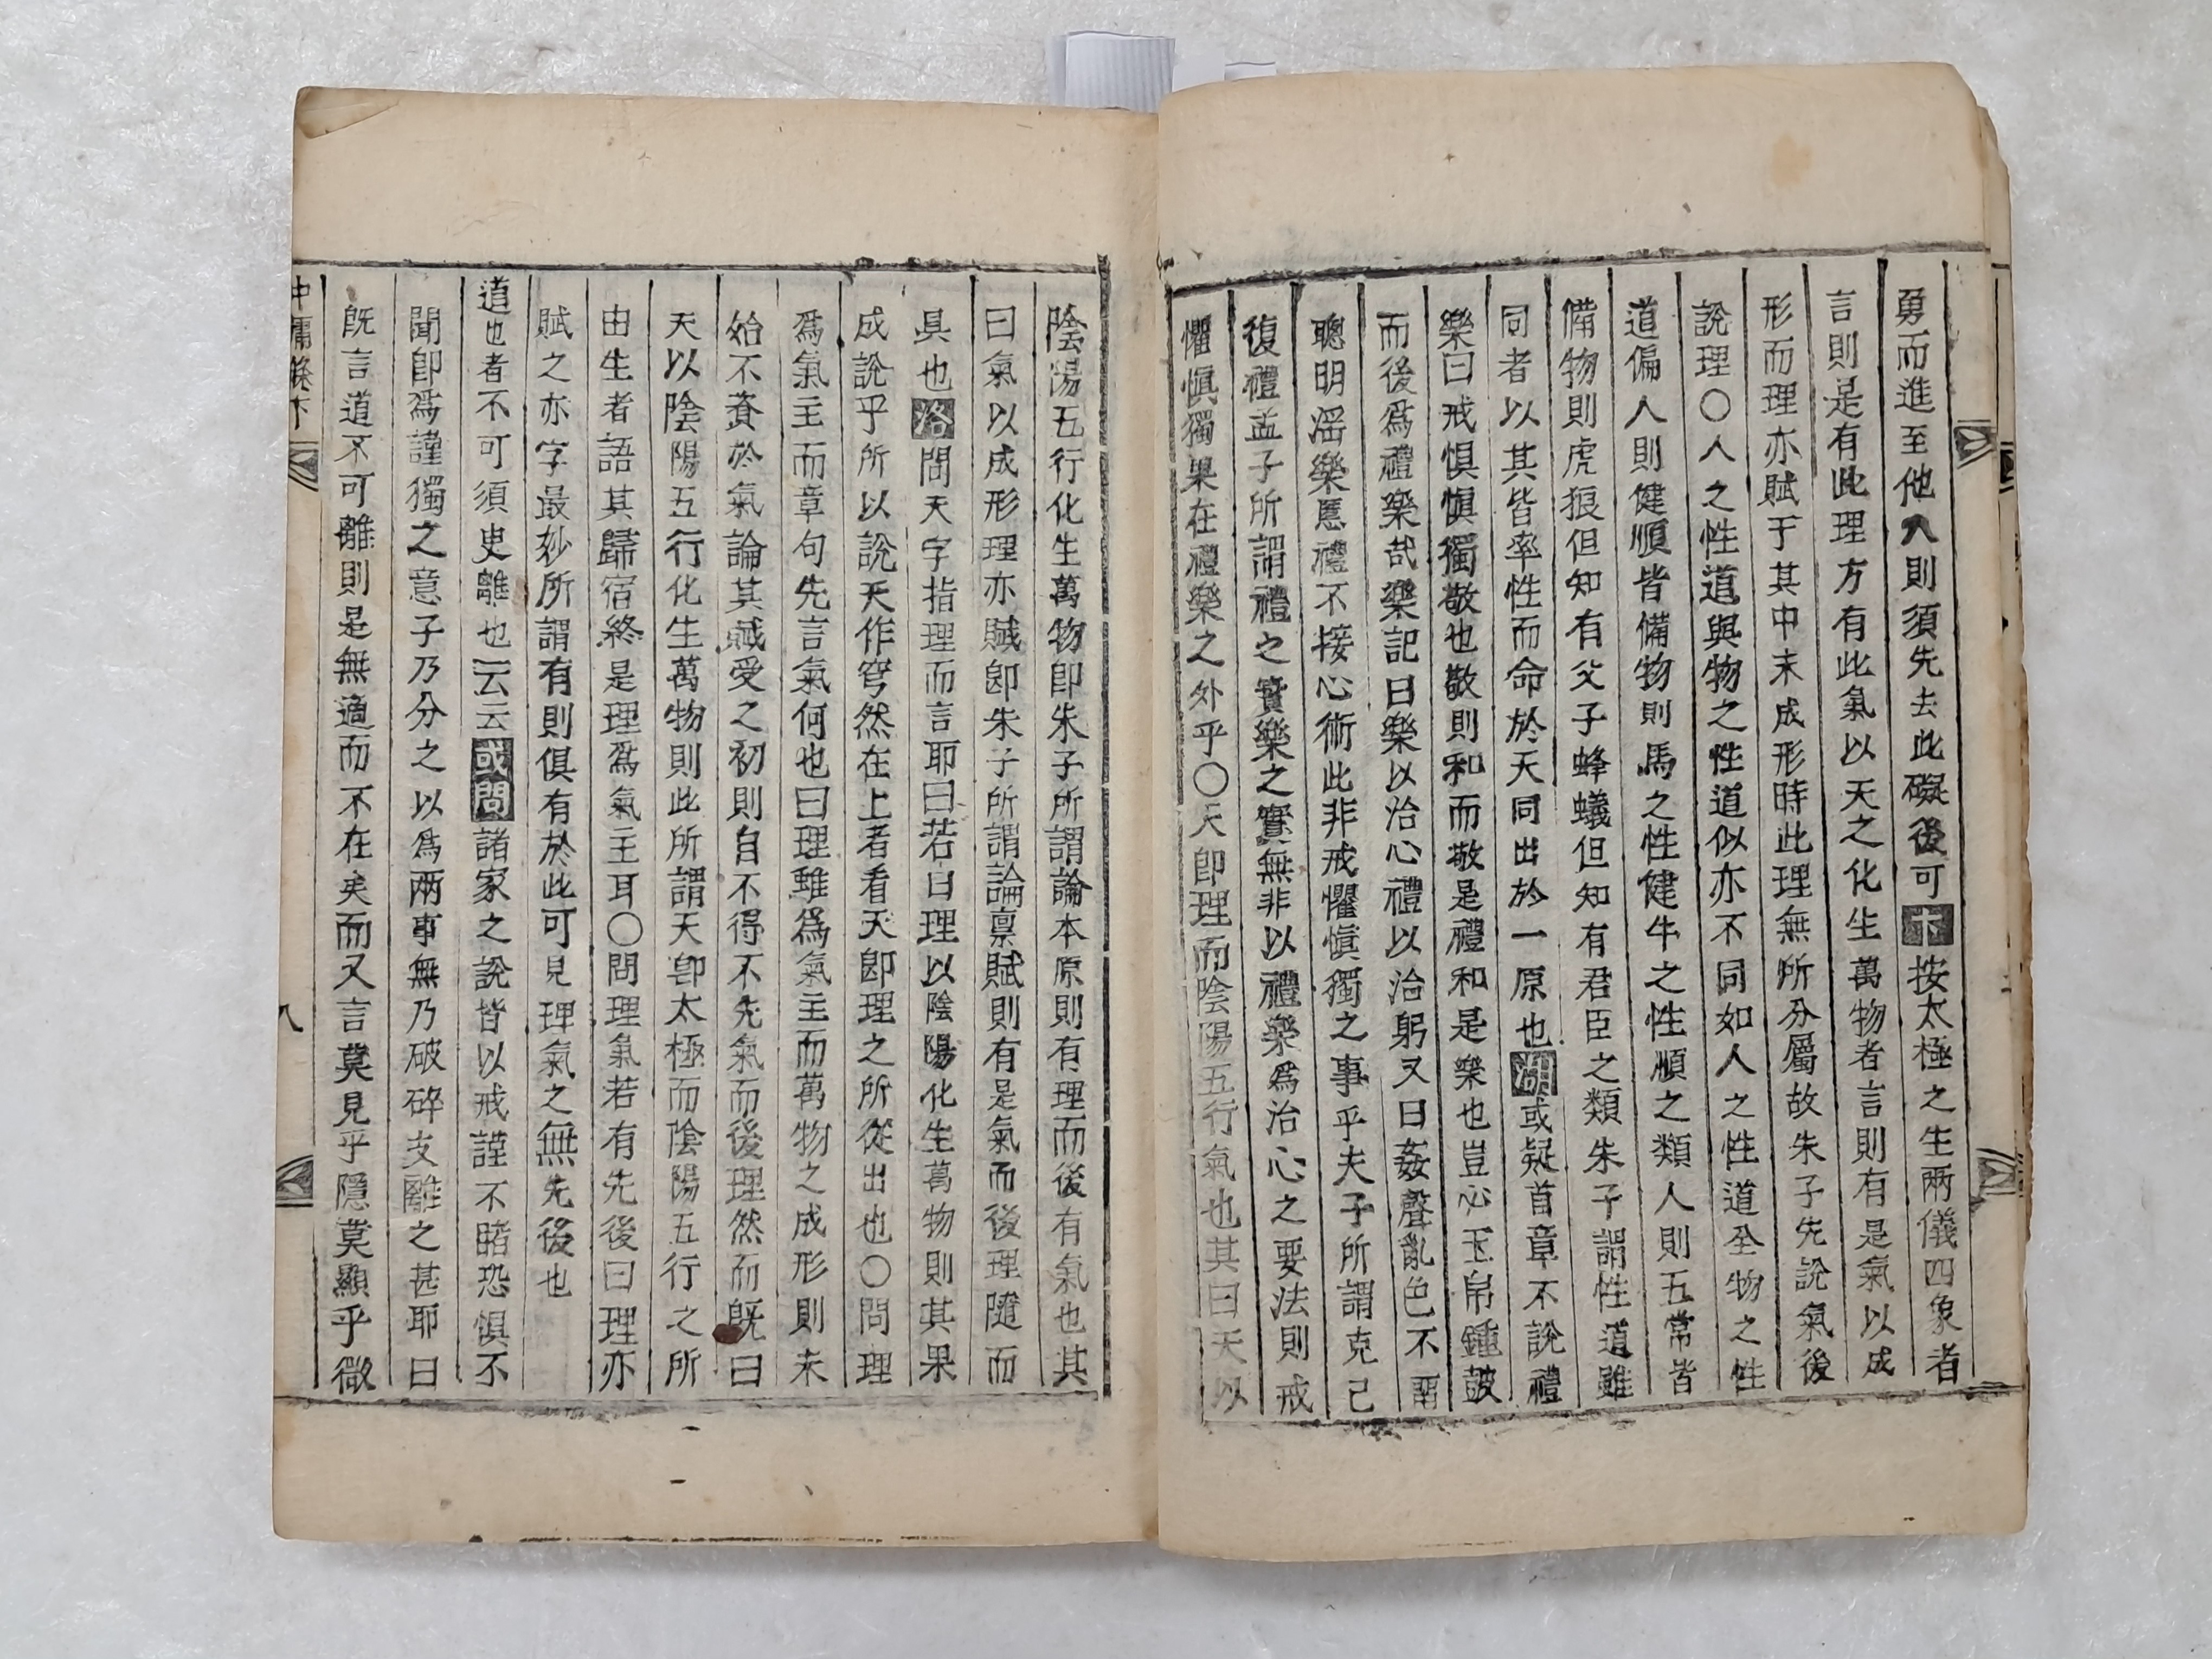 勇而進至他人則須先去此礙後可卞按太極之生兩儀四象者
言則是有此理方有此氣以天之化生萬物者言則有是氣以成
形而理亦賦于其中未成形時此理無所分屬故朱子先說氣後
說理〇人之性道與物之性道似亦不同如人之性道全物之性
道偏人則健順皆備物則馬之性健牛之性順之類人則五常皆
備物則虎狼但知有父子蜂蟻但知有君臣之類朱子謂性道雖
同者以其皆率性而命於天同出於一原也湖或疑首章不說禮
樂曰戒懼愼獨敬也敬則和而敬是禮和是樂也豈必玉帛鍾鼓
而後爲禮樂哉樂記曰樂以治心禮以治躬又曰姦聲亂色不畱
聰明滛樂慝禮不接心術此非戒懼愼獨之事乎夫子所謂克己
復禮孟子所謂禮之實樂之實無非以禮樂爲治心之要法則戒
懼愼獨果在禮樂之外乎〇天卽理而陰陽五行氣也其曰天以
陰陽五行化生萬物卽朱子所謂論本原則有理而後有氣也其
曰氣以成形理亦賦卽朱子所謂論禀賦則有是氣而後理隨而
具也洛問天字指理而言耶曰若曰理以陰陽化生萬物則其果
成說乎所以說天作穹然在上者看天卽理之所從出也〇問理
爲氣主而章句先言氣何也曰理雖爲氣主而萬物之成形則未
始不資於氣論其賦受之初則自不得不先氣而後理然而旣曰
天以陰陽五行化生萬物則此所謂天卽太極而陰陽五行之所
由生者語其歸宿終是理爲氣主耳〇問理氣若有先後曰理亦
賦之亦字最妙所謂有則俱有於此可見理氣之無先後也
道也者不可須臾離也云云或問諸家之說皆以戒謹不睹恐懼不
聞卽爲謹獨之意子乃分之以爲兩事無乃破碎支離之甚耶曰
旣言道不可離則是無適而不在矣而又言莫見乎隱莫顯乎微
中庸 下
八